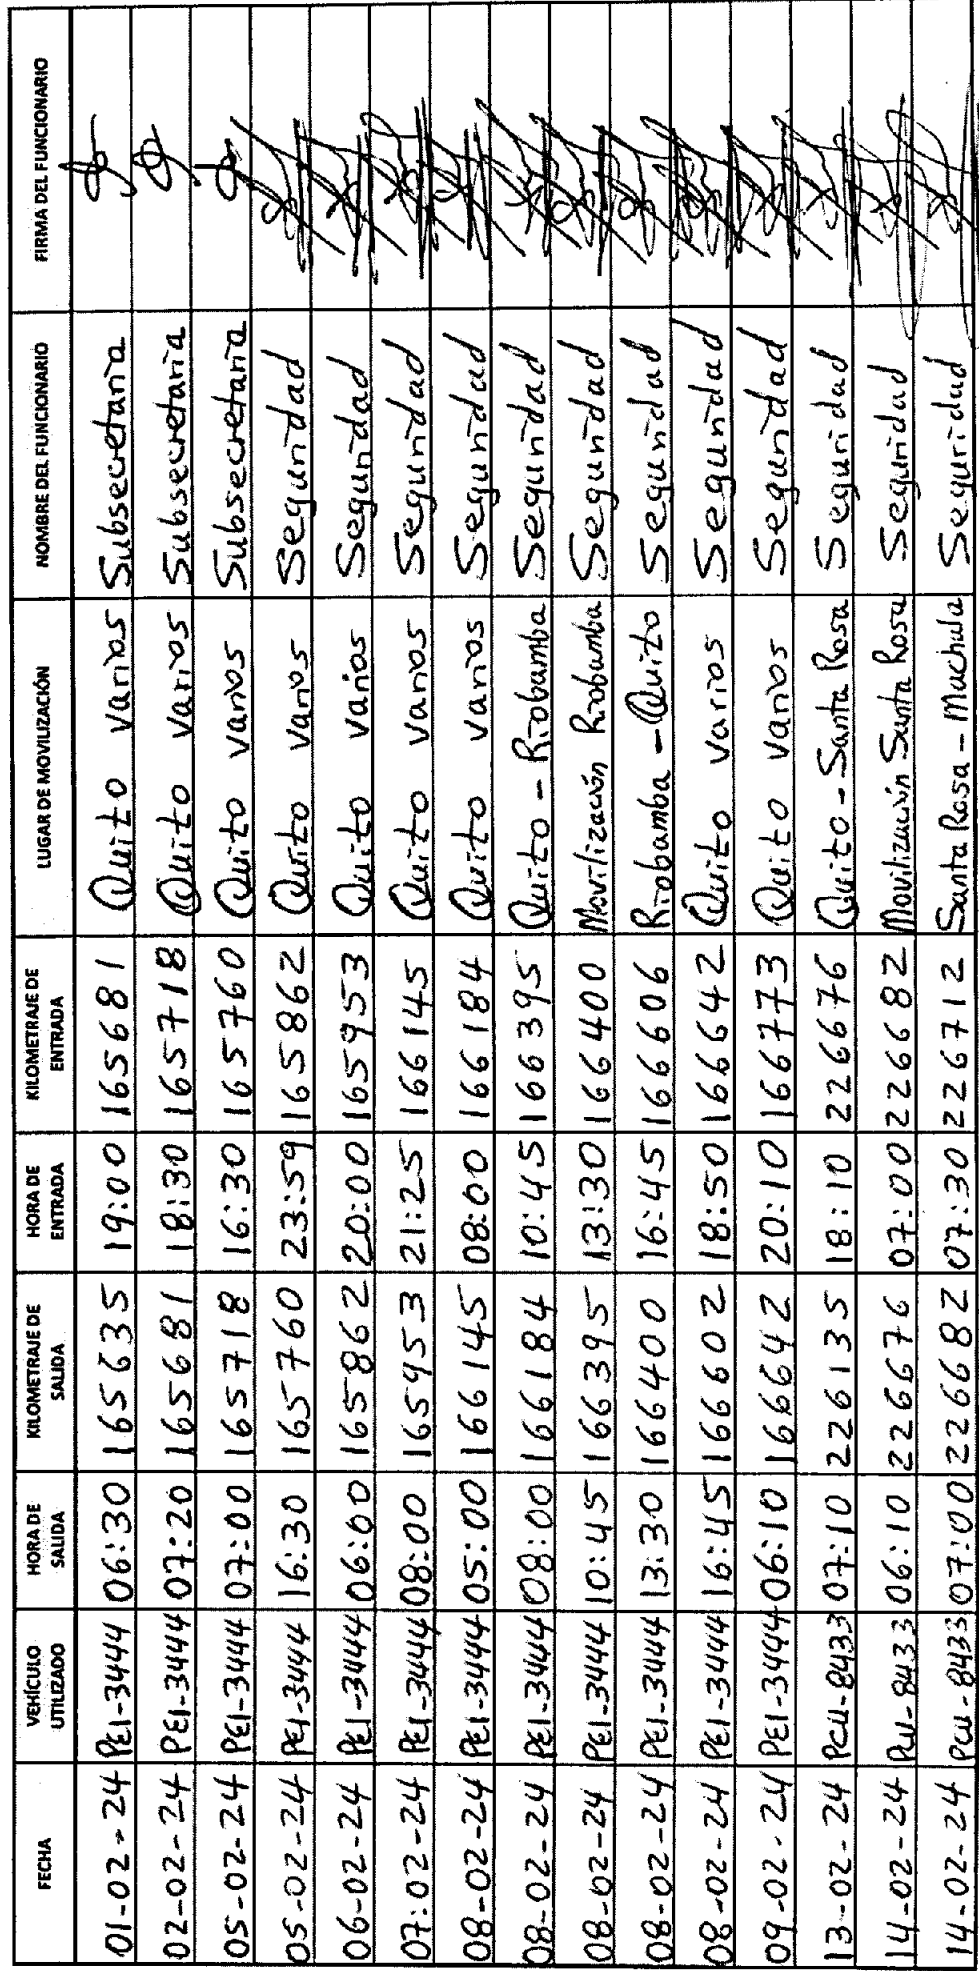 FECHA VEHÍCULO UTILIZADO HORA DE SALIDA KILOMETRAJE DE SALIDA HORA DE ENTRADA KILOMETRAJE DE ENTRADA LUGAR DE MOVILIZACIÓN NOMBRE DEL FUNCIONARIO FIRMA DEL FUNCIONARIO
01-02-24 PEI-3444 06:30 165635 19:00 165681 Quito varios Subsecretaría
02-02-24 PEI-3444 07:20 165681 18:30 165718 Quito varios Subsecretaría
05-02-24 PEI-3444 07:00 165718 16:30 165760 Quito varios Subsecretaría
05-02-24 PEI-3444 16:30 165760 23:59 165862 Quito varios Seguridad
06-02-24 PEI-3444 06:00 165862 20:00 165953 Quito varios Seguridad
07:02-24 PEI-3444 08:00 165953 21:25 166145 Quito varios Seguridad
08-02-24 PEI-3444 05:00 166145 08:00 166184 Quito varios Seguridad
08-02-24 PEI-3444 08:00 166184 10:45 166395 Quito - Riobamba Seguridad
08-02-24 PEI-3444 10:45 166395 13:30 166400 Movilización Riobamba Seguridad
08-02-24 PEI-3444 13:30 166400 16:45 166606 Riobamba - Quito Seguridad
08-02-24 PEI-3444 16:45 166602 18:50 166642 Quito varios Seguridad
09-02-24 PEI-3444 06:10 166642 20:10 166773 Quito varios Seguridad
13-02-24 PCU-8433 07:10 226135 18:10 226676 Quito - Santa Rosa Seguridad
14-02-24 PCU-8433 06:10 226676 07:00 226682 Movilización Santa Rosa Seguridad
14-02-24 PCU-8433 07:00 226682 07:30 226712 Santa Rosa - Machala Seguridad